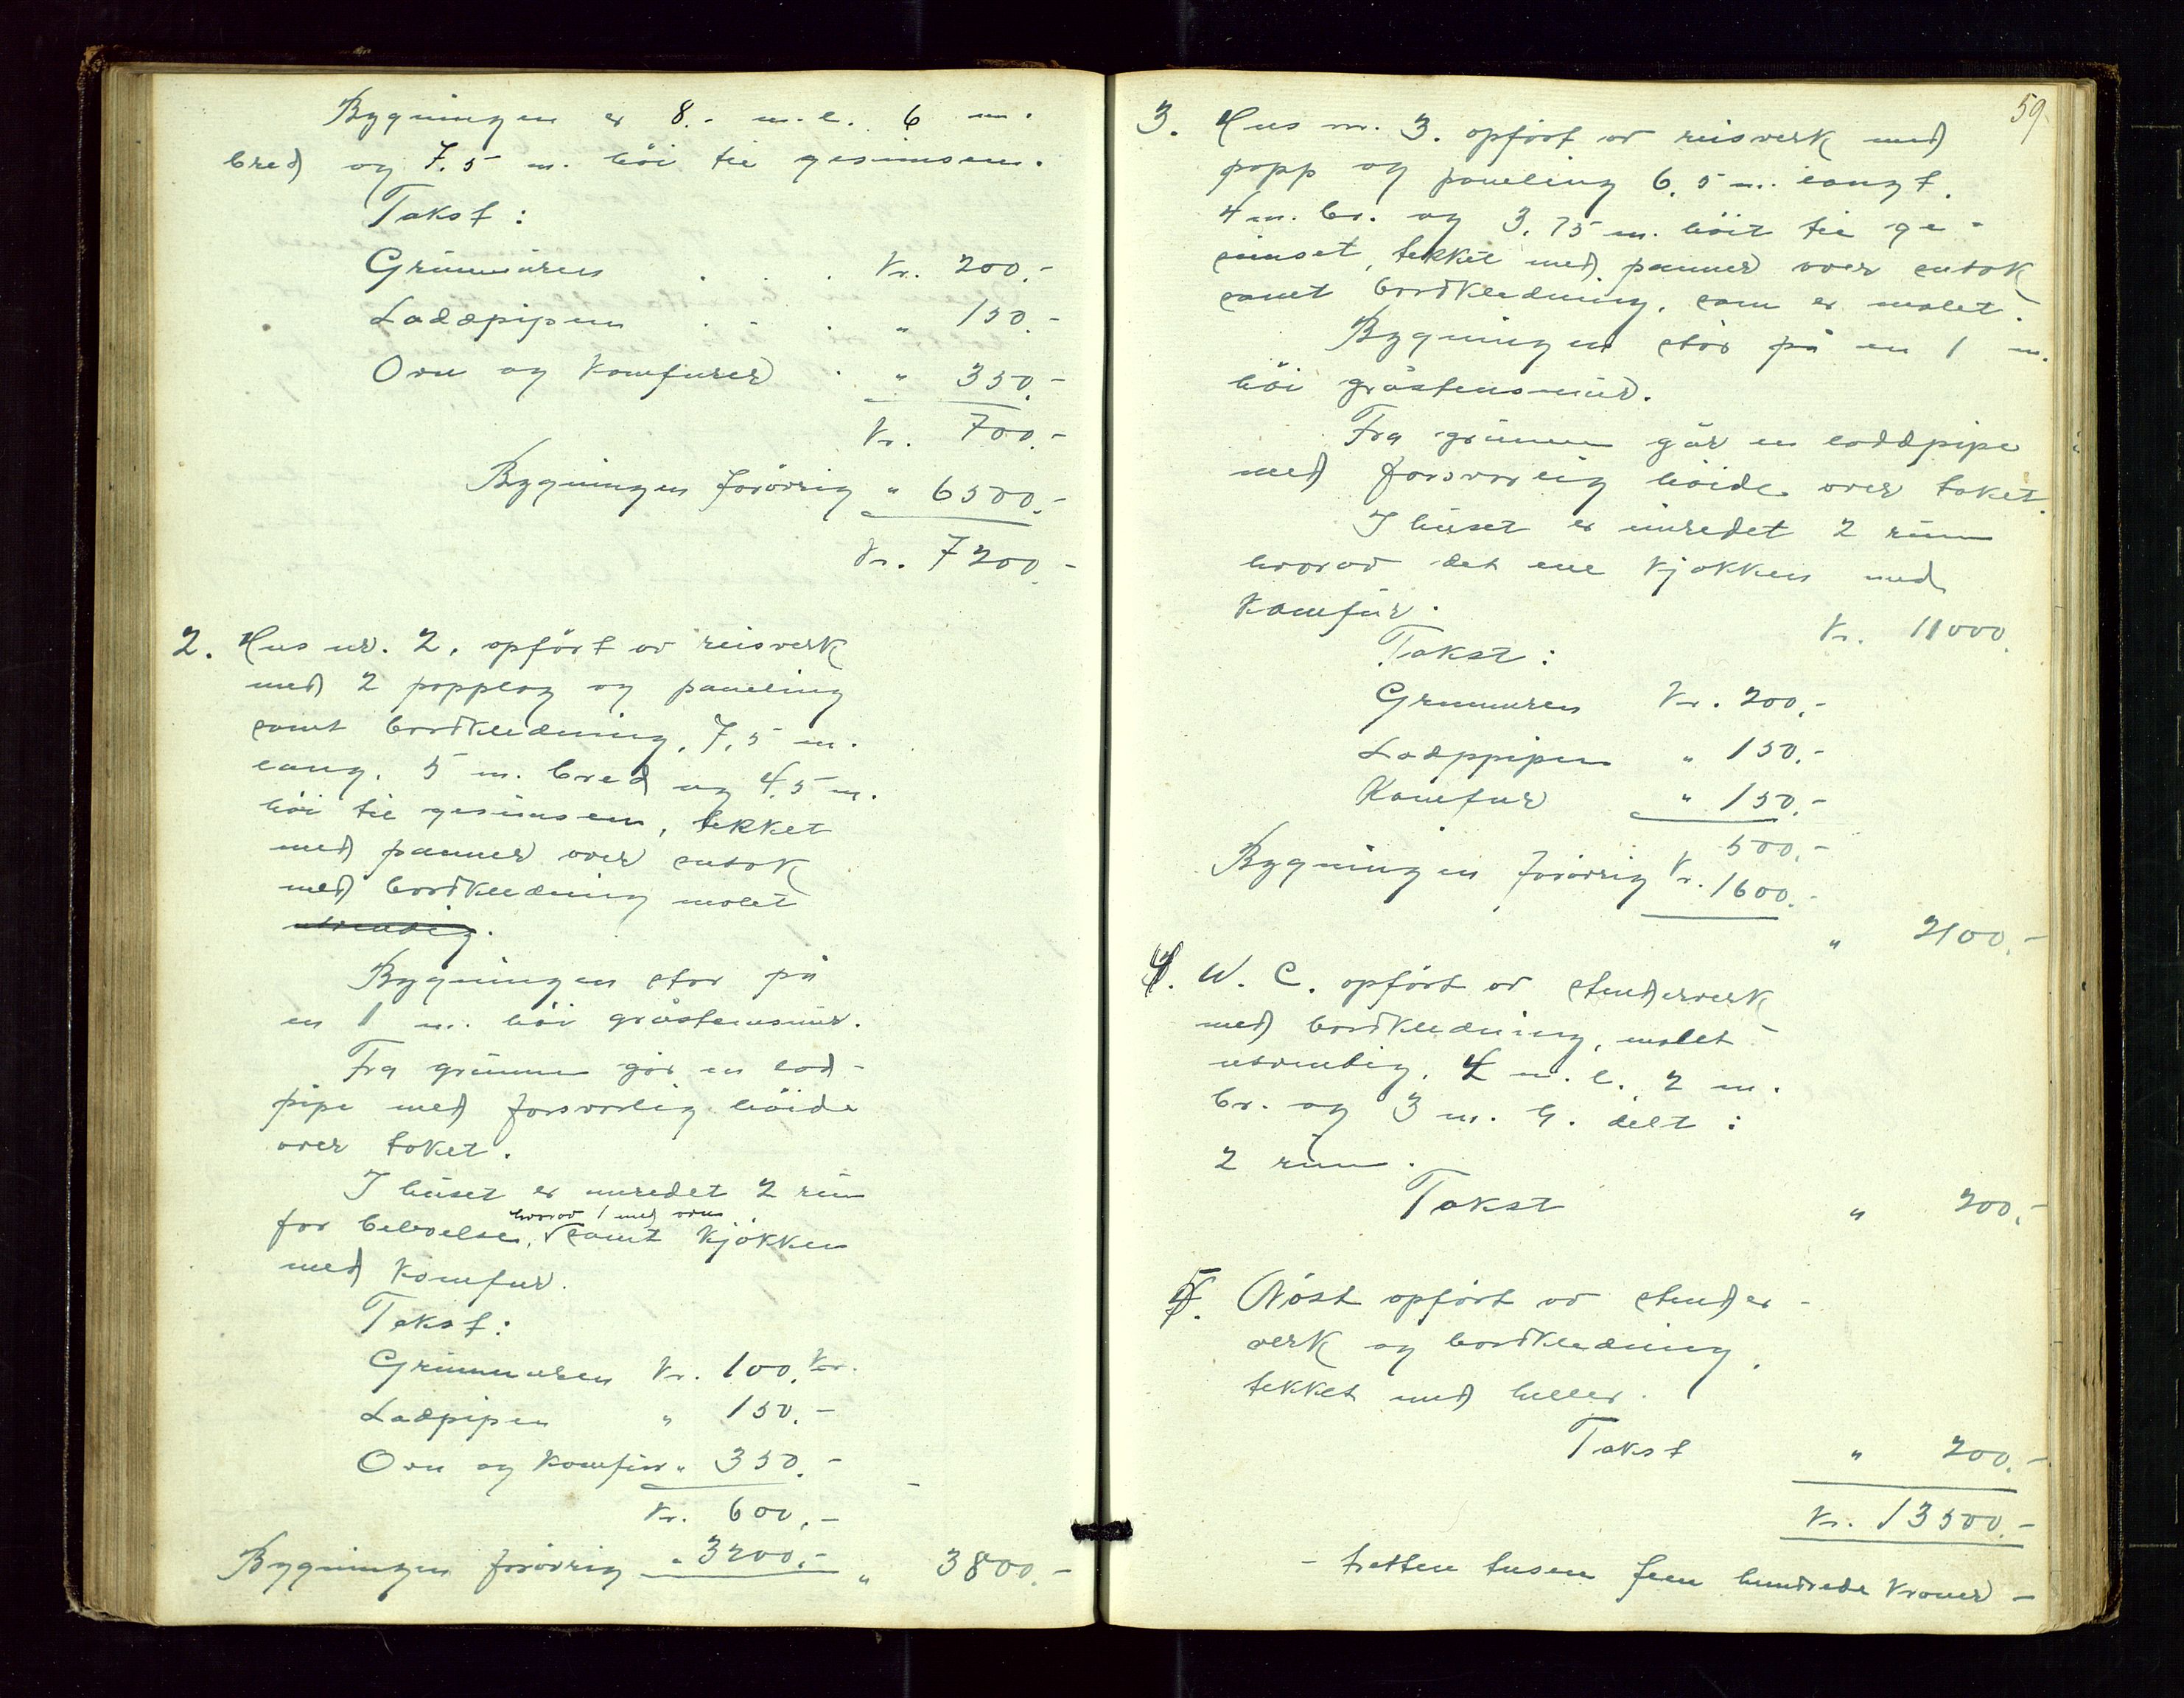 Bygningen er 8.- m. l. 6 m.
bred og 7.5 m. høi til gesimsen.
Takst:
Grunmuren . . . kr. 200.-
Loddpipen . . . " 150.-
Ovn og komfurer . " 350.-
kr. 700.-
Bygningen forøvrig " 6500.-
kr. 7200.-
2. Hus nr. 2, opført av reisverk
med 2 papplag og paneling
samt bordkledning, 7,5 m.
lang. 5 m. bred og 4,5 m.
høi til gesimsen, tekket
med panner over sutak
med bordkledning malet
utvendig.
Bygningen står på
en 1 m. høi gråstensmur.
Fra grunnen går en lod-
pipe med forsvarlig høide
over taket.
I huset er innredet 2 rum
hvorav 1 med ovn
for beboelse, √ samt kjøkken
med komfur.
Takst:
Grunnmuren kr. 100, kr.
Lodpipen " 150.-
Ovn og komfur " 350.-
kr. 600,-
Bygningen forøvrig " 3200.- " 3800.-
59
3. Hus nr. 3. opført av reisverk med
papp og paneling 6,5 m. langt,
4 m. br. og 3,75 m. høit til ge-
simset, tekket med panner over sutak
samt bordkledning, som er malet.
Bygningen står på en 1 m.
høi gråstensmur.
Fra grunnen går en loddpipe
med forsvarlig høide over taket.
I huset er innredet 2 rum
hvorav det ene kjøkken med
komfur.
kr. 11000
Takst:
Grunmuren kr. 200,-
Lodppipen " 150,-
Komfur " 150,-
500,-
Bygningen forøvrig kr. 1600.-
" 2100.-
4. W. C. opført av stenderverk
med bordkledning, malet
utvendig. 4 m. l. 2 m.
br. og 3 m. h. delt i
2 rum.
Takst " 200.-
5. Nøst opført av stender-
verk og bordkledning,
tekket med heller.
Takst " 200.-
kr. 13500.-
- tretten tusen fem hundrede kroner -